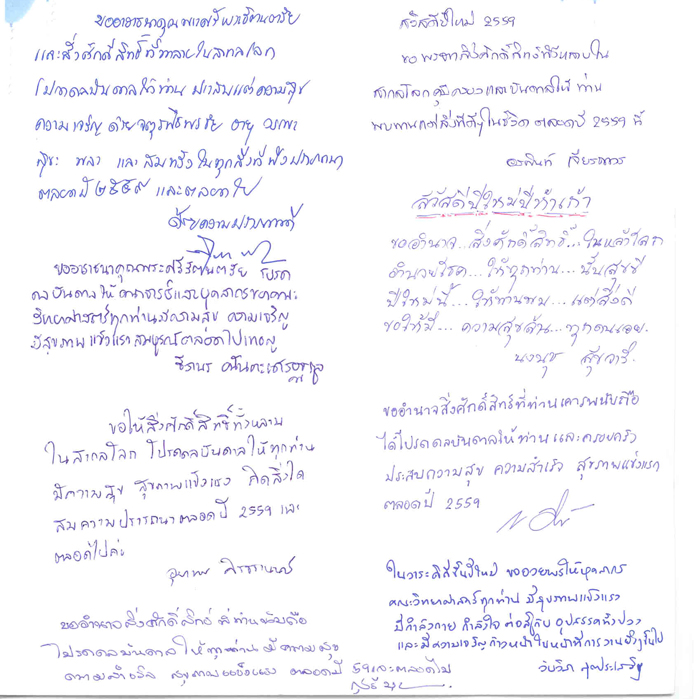 ขออาราธนาคุณพระศรีรัตนตรัย
และสิ่งศักดิ์สิทธิ์ทั้งหลายในสากลโลก
โปรดดลบันดาลให้ท่าน ประสบแต่ความสุข
ความเจริญ ด้วยจตุรพิธพรชัย อายุ วรรณะ
สุขะ พละ และสมหวังในทุกสิ่งที่พึงปรารถนา
ตลอดปี ๒๕๕๙ และตลอดไป
ด้วยความปรารถนาดี
ขออาราธนาคุณพระศรีรัตนตรัย โปรด
ดลบันดาลให้ คณาจารย์และบุคลากรของคณะ
วิทยาศาสตร์ทุกท่านมีความสุข ความเจริญ
มีสุขภาพแข็งแรง สมบูรณ์ตลอดไปเทอญ
ขอให้สิ่งศักดิ์สิทธิ์ทั้งหลาย
ในสากลโลก โปรดดลบันดาลให้ทุกท่าน
มีความสุข สุขภาพแข็งแรง คิดสิ่งใด
สมความปรารถนาตลอดปี 2559 และ
ตลอดไปค่ะ
ขออำนาจสิ่งศักดิ์สิทธิ์ ที่ท่านนับถือ
โปรดดลบันดาลให้ทุกท่าน มีความสุข
ความสำเร็จ สุขภาพแข็งแรง ตลอดปี 59 และตลอดไป
สวัสดีปีใหม่ 2559
ขอพรจากสิ่งศักดิ์สิทธิ์ทั้งหลายใน
สากลโลกคุ้มครองและบันดาลให้ ท่าน
พบพานแต่สิ่งที่ดีๆในชีวิต ตลอดปี 2559 นี้
สวัสดีปีใหม่ปีห้าเก้า
ขออำนาจ...สิ่งศักดิ์สิทธิ์...ในแหล่งโลก
อำนวยโชค...ให้ทุกท่าน...นั้นสุขขี
ปีใหม่นี้...ให้ท่านพบ...แต่สิ่งดี
ขอให้มี...ความสุขล้น...ทุกคนเอย.
นงนุช สุขวารี
ขออำนาจสิ่งศักดิ์สิทธิ์ที่ท่านเคารพนับถือ
ได้โปรดดลบันดาลให้ท่าน และครอบครัว
ประสบความสุข ความสำเร็จ สุขภาพแข็งแรง
ตลอดปี 2559
ในวาระดิถีขึ้นปีใหม่ ขออวยพรให้บุคลากร
คณะวิทยาศาสตร์ทุกท่าน มีสุขภาพแข็งแรง
มีกำลังกาย กำลังใจ ต่อสู้กับ อุปสรรคทั้งปวง
และมีความเจริญก้าวหน้าในหน้าที่การงานยิ่งขึ้นไป